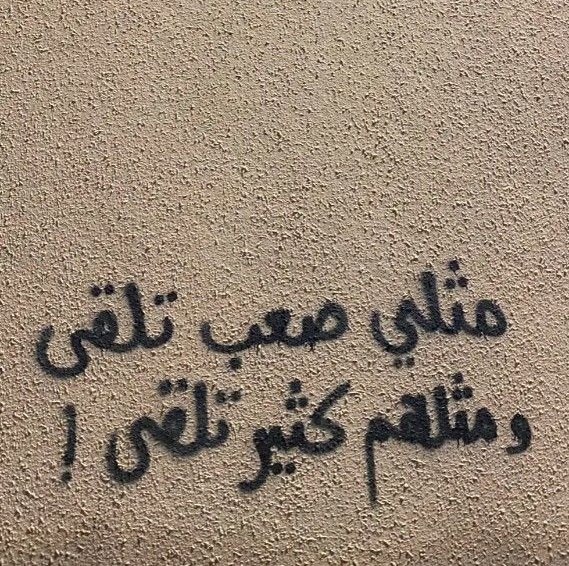 مثلي صعب تلقى
ومثلهم كثير تلقى !